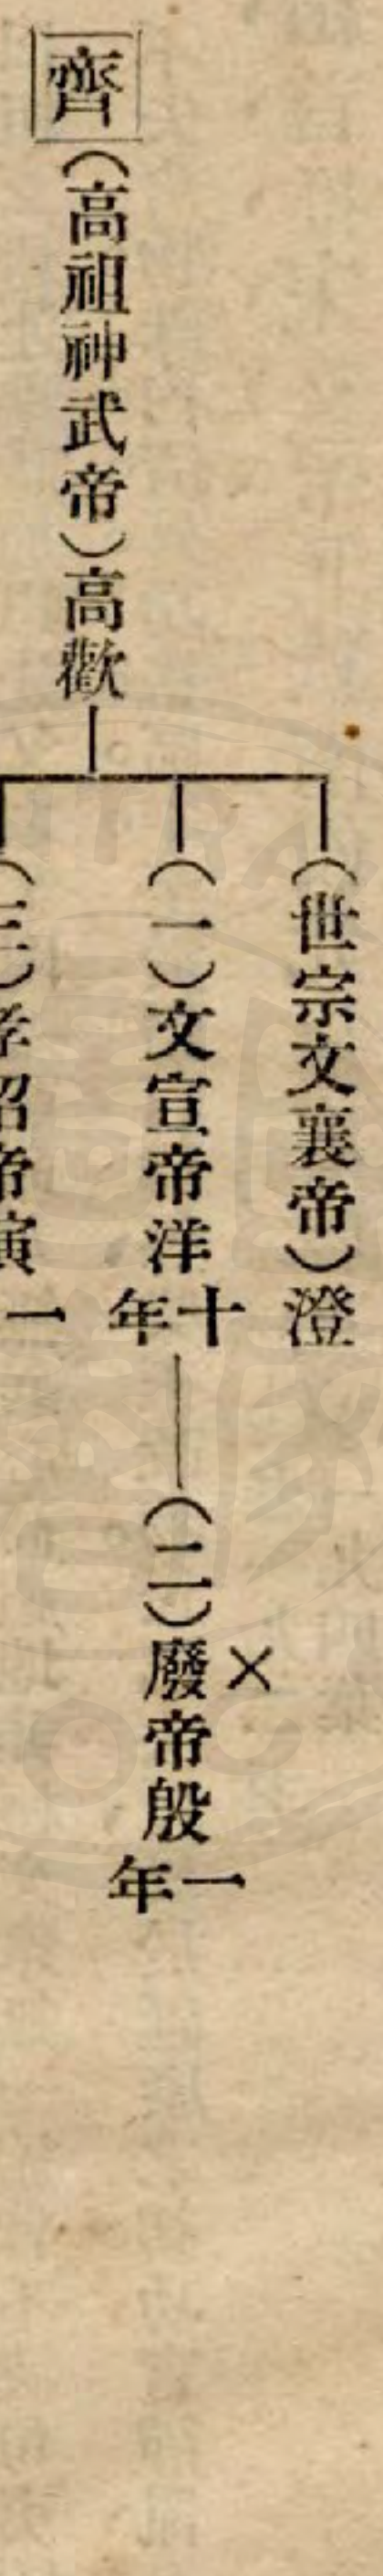 齊
（高祖神武帝）高歡
（世宗文襄帝）澄
（一）文宣帝洋十年
（二）廢帝殷一年
×
（三）孝昭帝演一